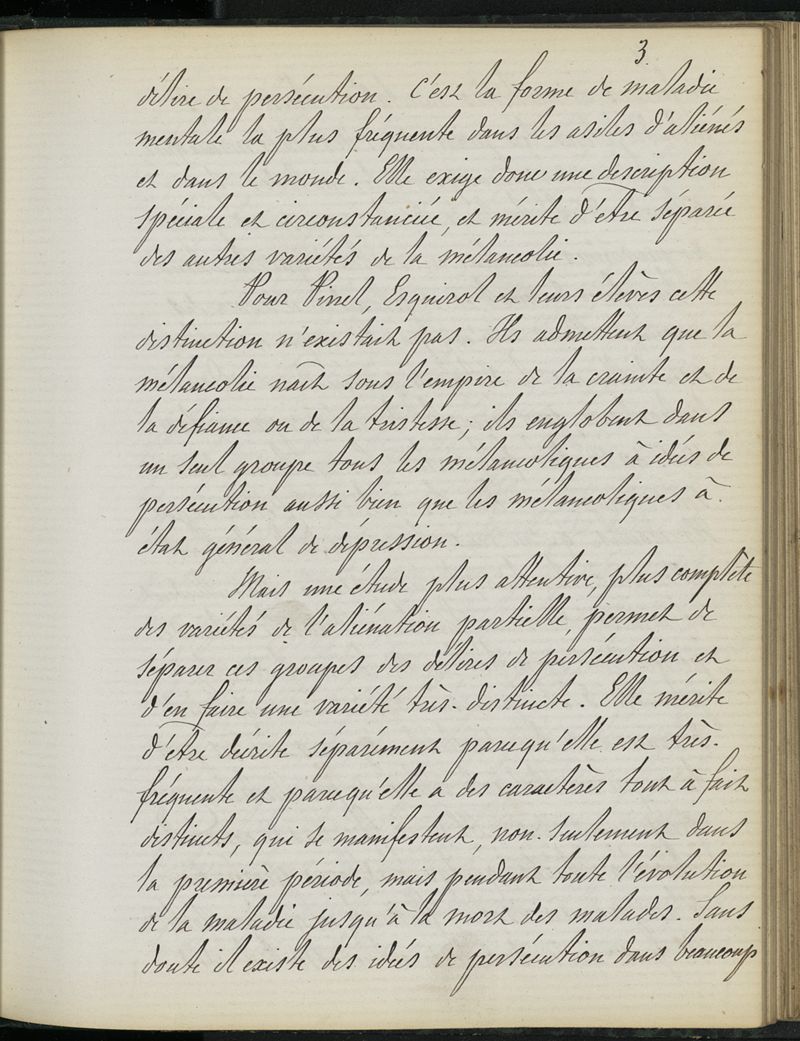 3
délire de persécution. C'est la forme de maladie
mentale la plus fréquente dans les asiles d'aliénés
et dans le monde. Elle exige donc une description
spéciale et circonstanciée, et mérite d'être séparée
des autres variétés de la mélancolie.
Pour Pinel, Esquirol et leurs élèves cette
distinction n'existait pas. Ils admettent que la
mélancolie naît sous l'empire de la crainte et de
la défiance ou de la tristesse; ils englobent dans
un seul groupe tous les mélancoliques à idées de
persécution aussi bien que les mélancoliques à
état général de dépression.
Mais une étude plus attentive, plus complète
des variétés de l'aliénation partielle, permet de
séparer ces groupes des délires de persécution et
d'en faire une variété très-distincte. Elle mérite
d'être décrite séparément parcequ'elle est très-
fréquente et parcequ'elle a des caractères tout à fait
distincts, qui se manifestent, non-seulement dans
la première période, mais pendant toute l'évolution
de la maladie jusqu'à la mort des malades. Sans
doute il existe des idées de persécution dans beaucoup